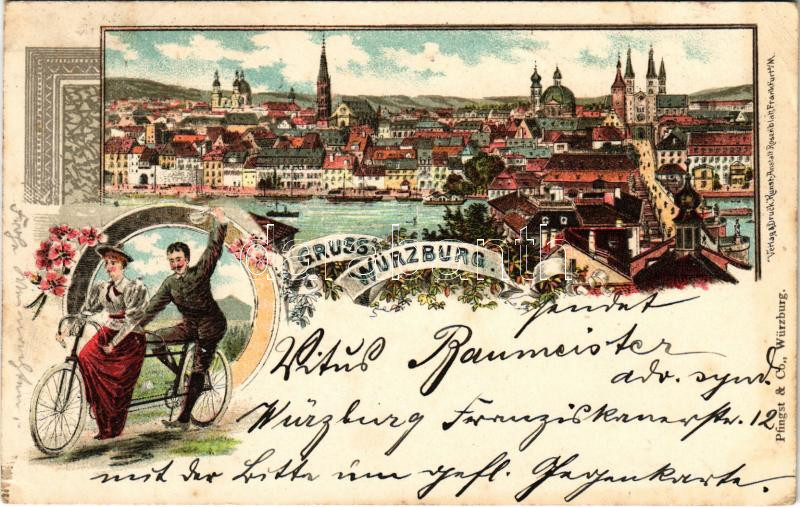 GRUSS a.
WÜRZBURG.
sendet
Vitus Baumeister
adv. synd.
Würzburg Franziskanerstr. 12
mit der Bitte um gefl. Gegenkarte.
Verlag & Druck Kunst-Anstalt Rosenblatt, Frankfurt a/M.
Pfingst & Co., Würzburg.